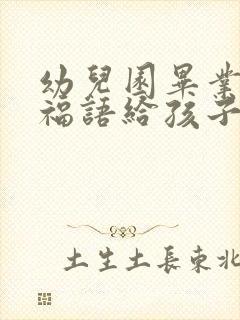 幼兒園畢業
福語給孩子
土生土長東北